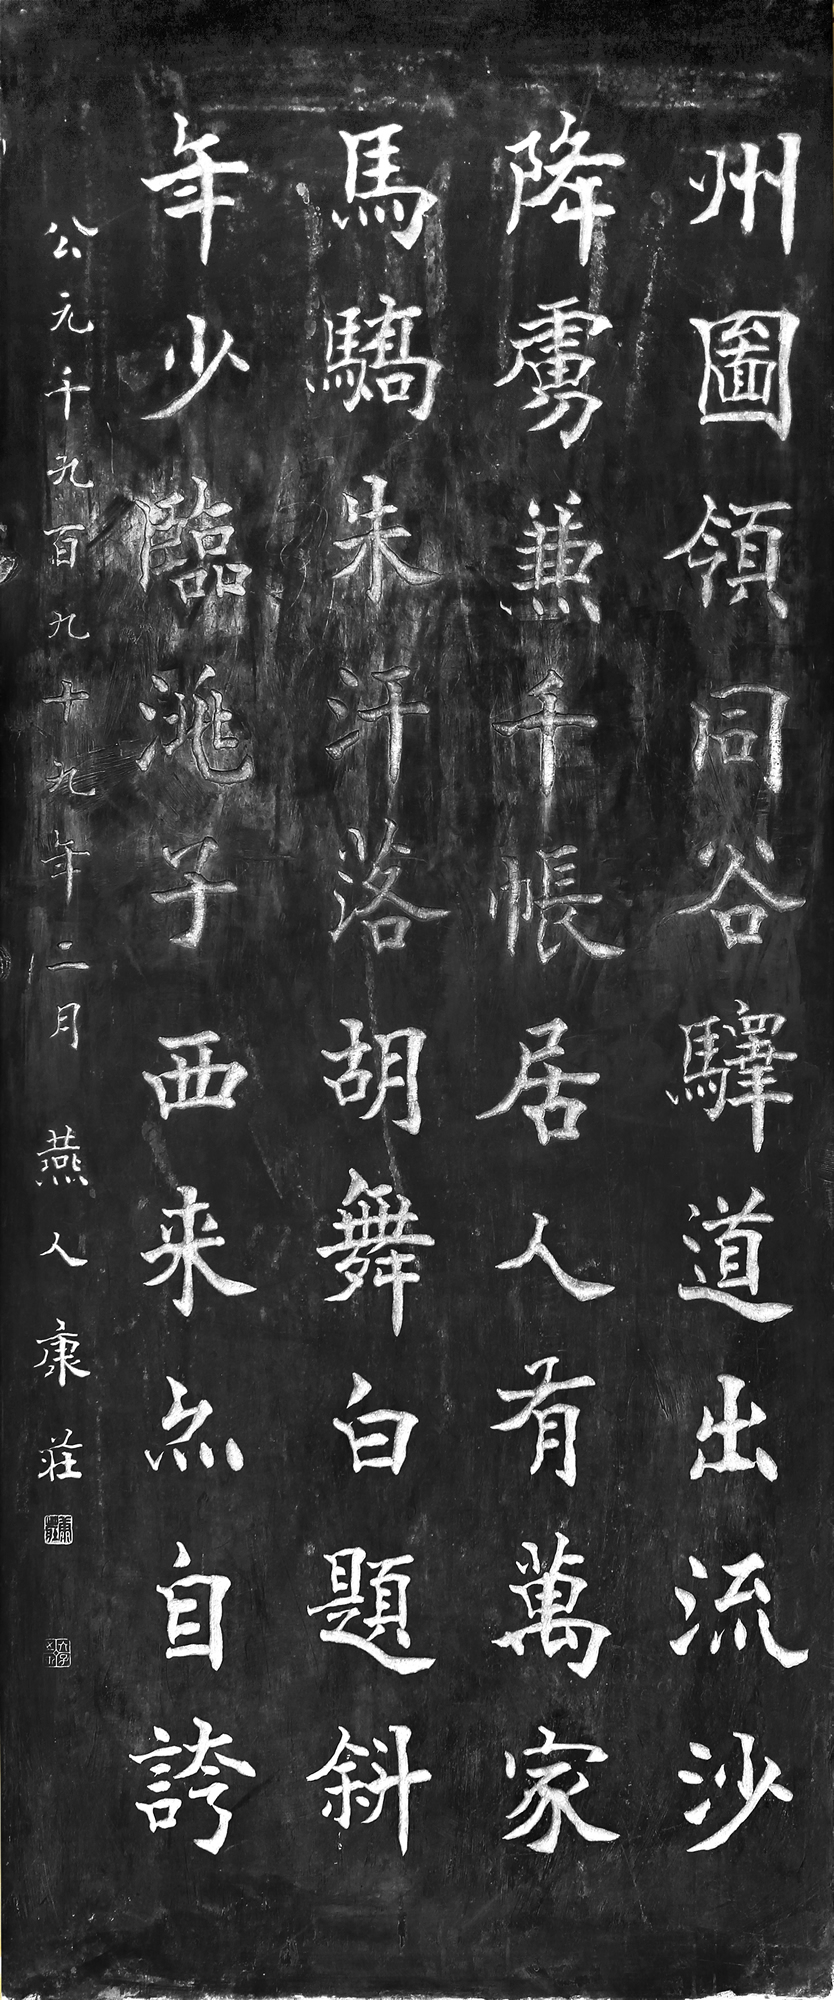 州圖領同谷驛道出流沙
降虜兼千帳居人有萬家
馬驕朱汗落胡舞白題斜
年少臨洮子西来亦自誇
公元千九百九十九年二月 燕人康莊